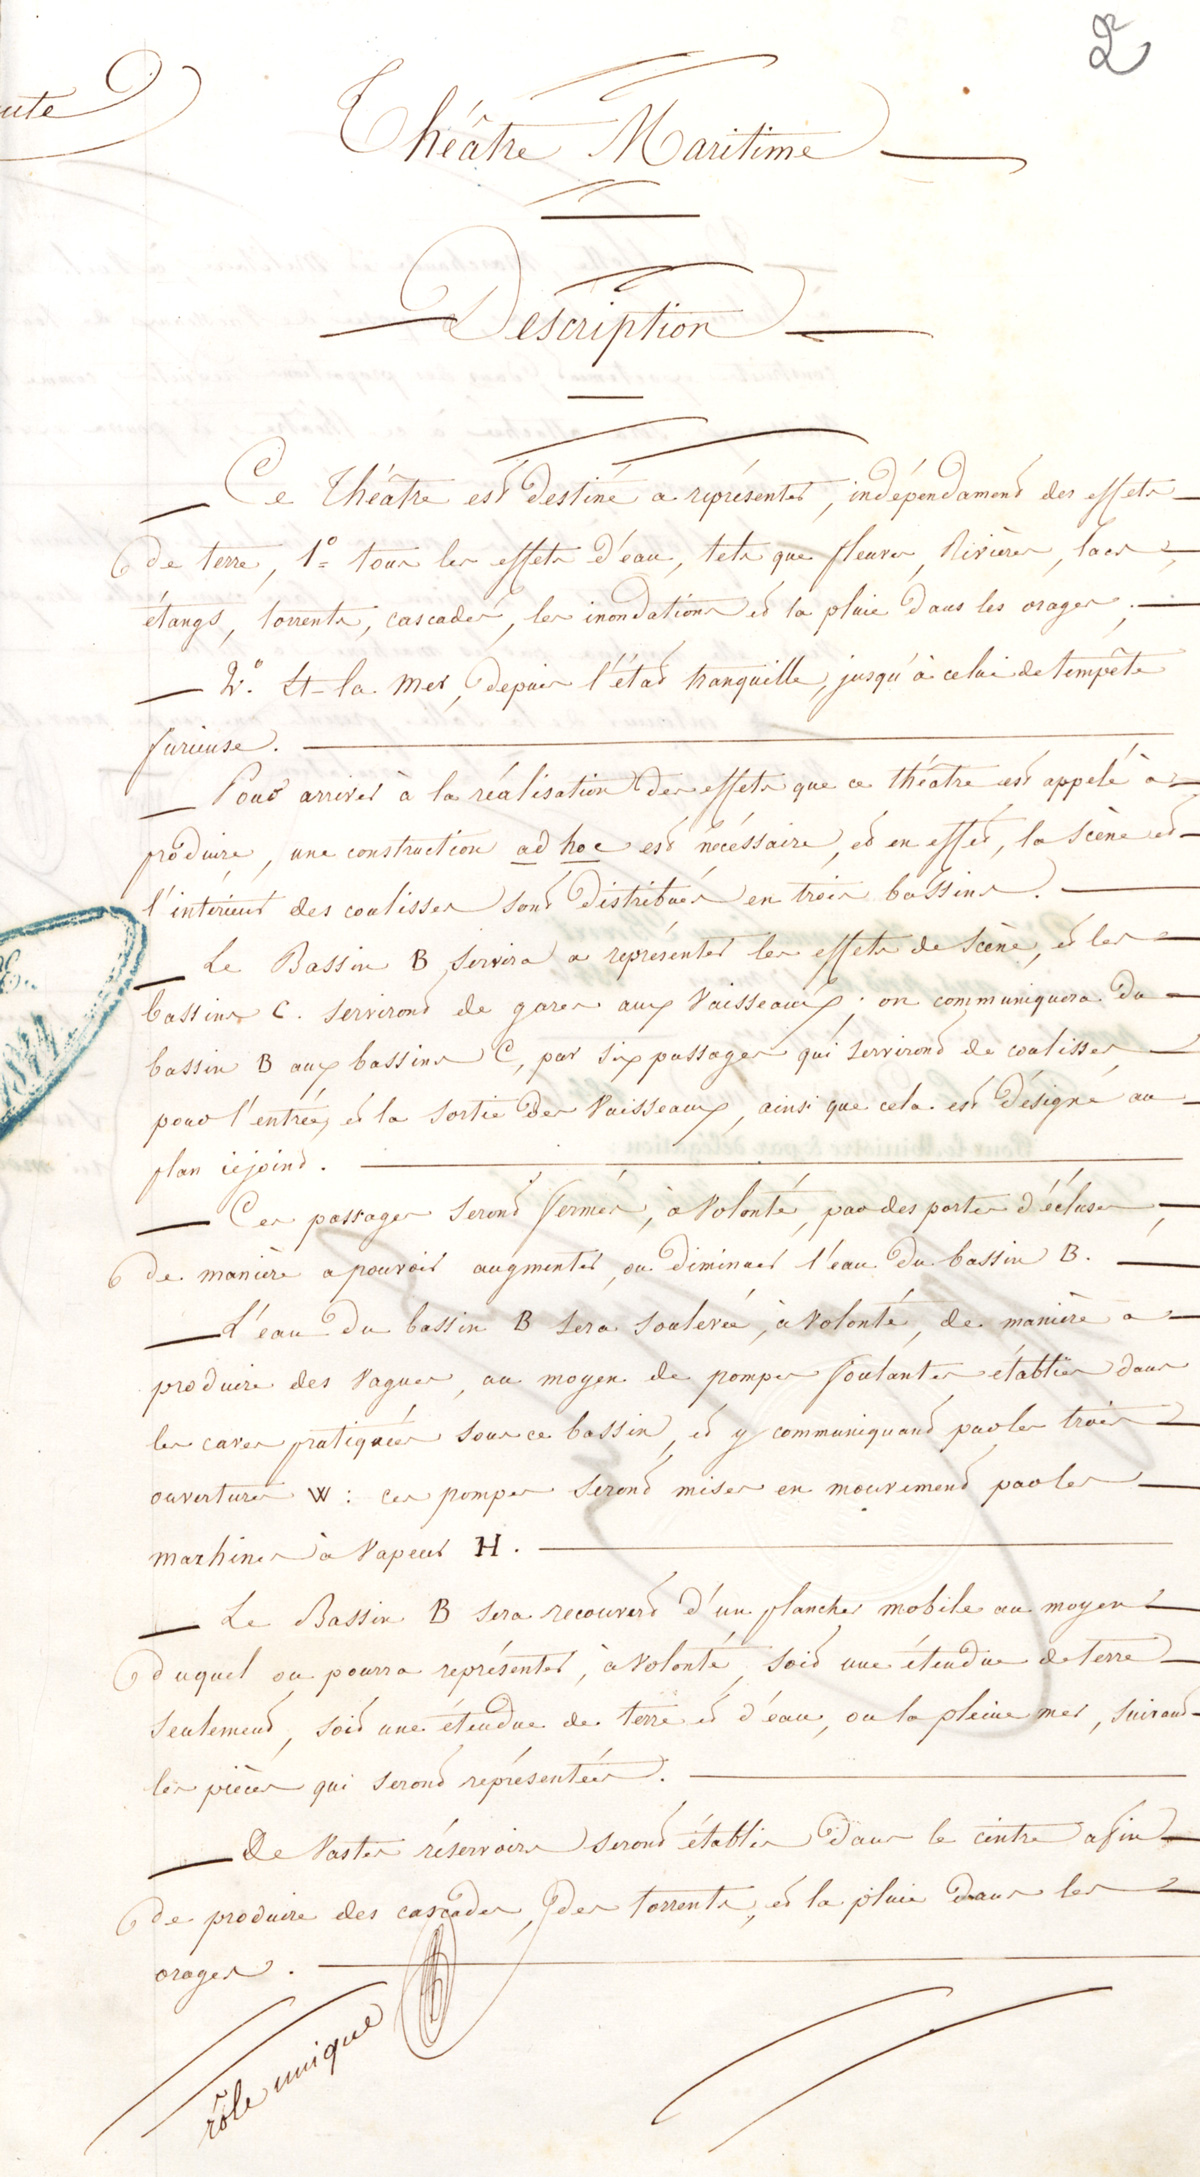 2
Théâtre Maritime
Description
Ce Théâtre est destiné a représenter, indépendament des effets
de terre, 1° tous les effets d'eau, tels que fleuves, Rivières, lacs,
étangs, torrents, cascades, les inondations et la pluie dans les orages ;
2°. Et la Mer, depuis l'état tranquille, jusqu'à celui de tempête
furieuse.
Pour arriver à la réalisation des effets que ce théâtre est appelé à
produire, une construction ad hoc est nécessaire, et en effet, la scène et
l'intérieur des coulisses sont distribués en trois bassins.
Le Bassin B servira a représenter les effets de Scène, et les
bassins C. serviront de gares aux Vaisseaux ; on communiquera du
bassin B aux bassins C, par six passages qui serviront de coulisses
pour l'entrée, et la sortie des Vaisseaux, ainsi que cela est désigné au
plan cijoint.
Ces passages seront fermés, à Volonté, par des portes d'écluses,
de manière a pouvoir augmenter, ou diminuer l'eau du bassin B.
L'eau du bassin B sera soulevée, à Volonté, de manière à
produire des Vagues, au moyen de pompes foulantes établies dans
les caves pratiquées sous ce bassin, et y communiquant par les trois
ouvertures W : ces pompes seront mises en mouvement par les
machines à Vapeur H.
Le Bassin B sera recouvert d'un plancher mobile au moyen
duquel on pourra représenter, à Volonté, soit une étendue de terre
seulement, soit une étendue de terre et d'eau, ou la pleine mer, suivant
les pièces qui seront représentées.
De Vastes réservoirs seront établis dans le cintre afin
de produire des cascades, des torrents, et la pluie dans les
orages.
rôle unique